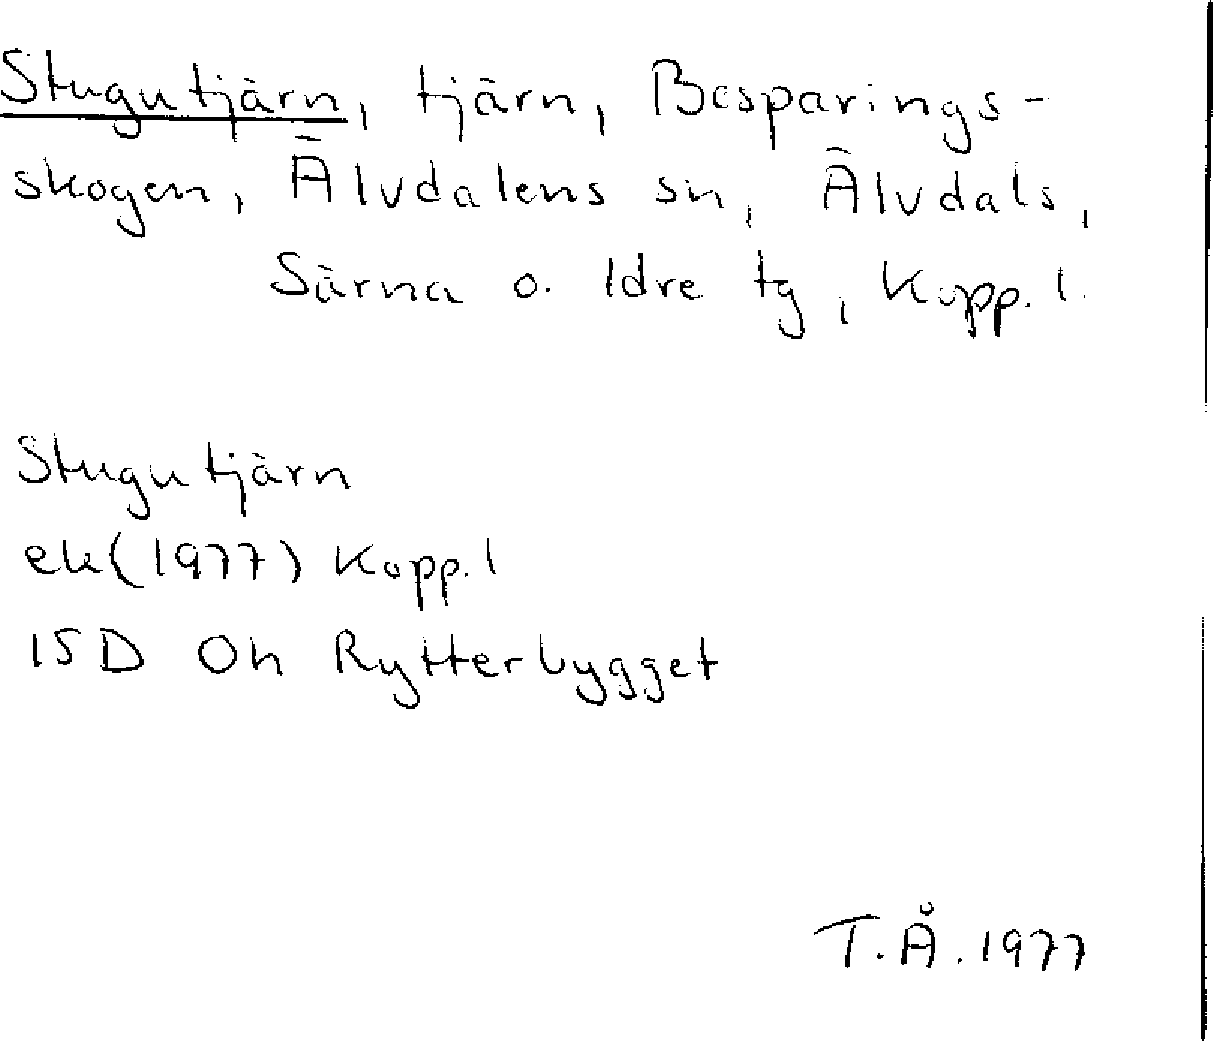 Stugutjärn, tjärn, Besparings-
skogen, Älvdalens sn, Älvdals,
Särna o. Idre tg, Kopp. l.
Stugutjärn
ek(1977) Kopp. l
15D 0h Rytterbygget
T.Å. 1977